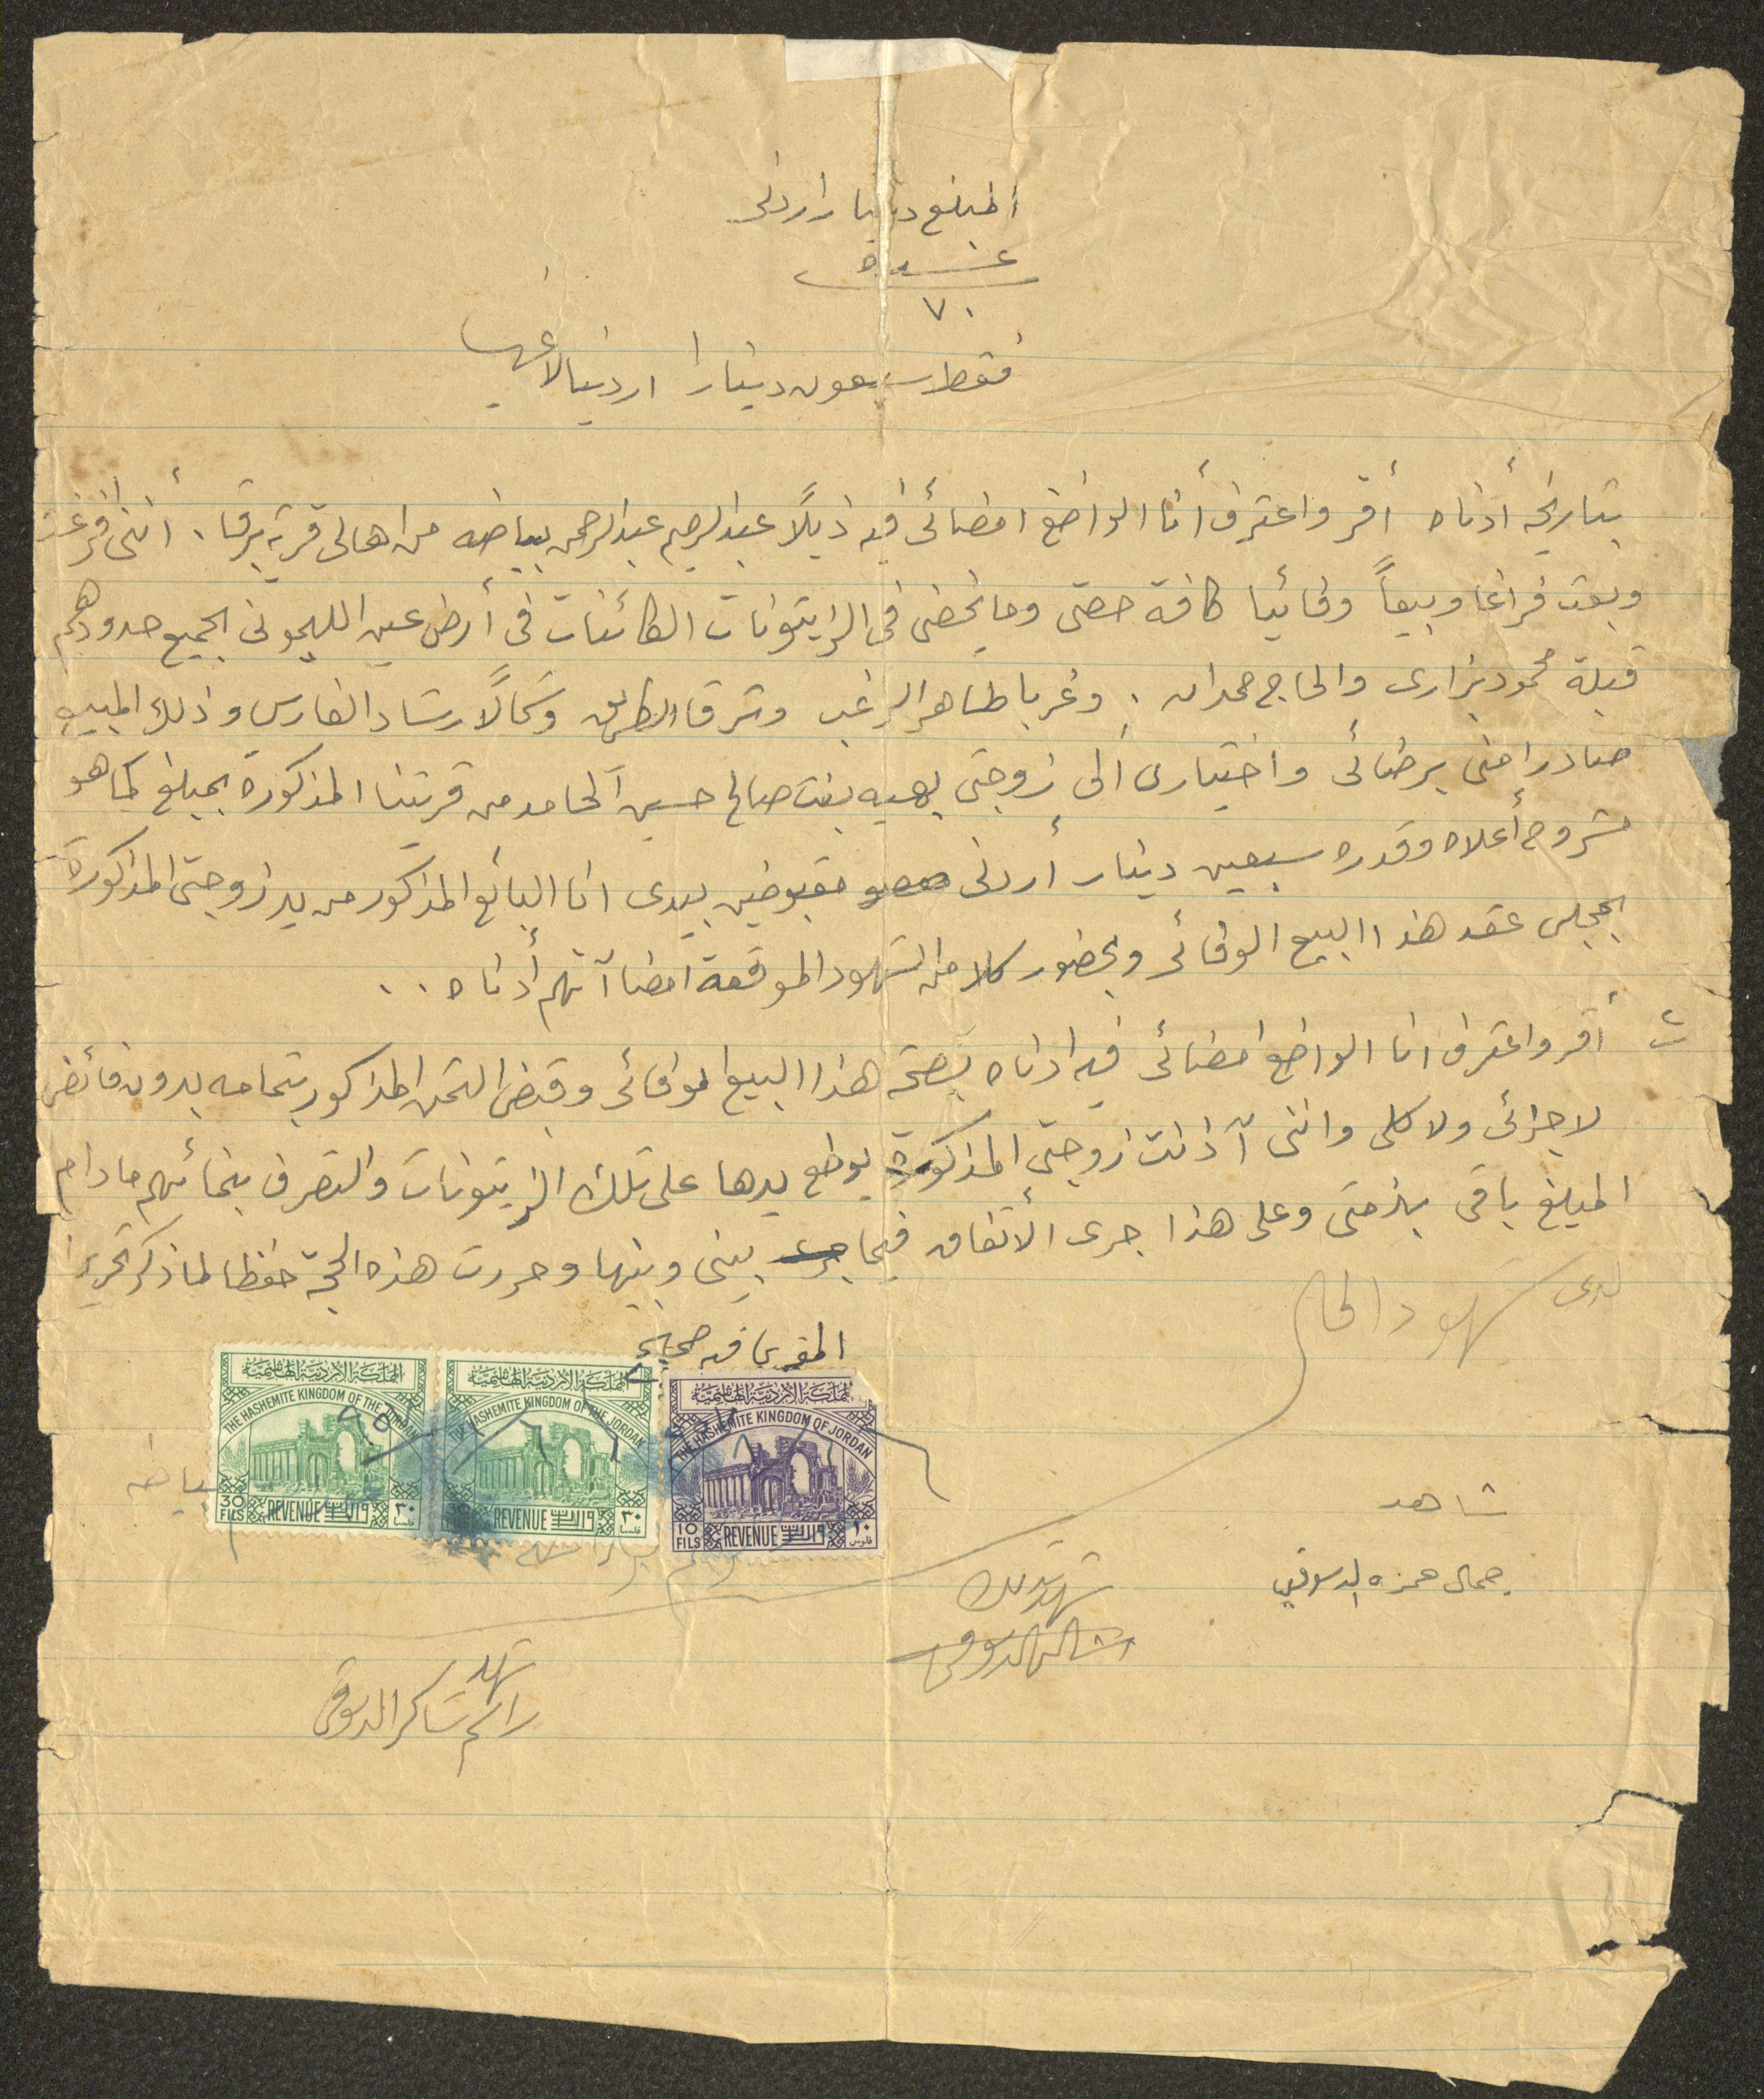 المبلغ دينار اردني
عدد
٧٠
فقط سبعون دينارا اردنيا لا غير
بتاريخه أدناه أقر واعترف أنا الواضع امضائي فيه ذيلاً عبد الرحيم عبد الرحمن بياضه من اهالي قرية برقا. أنني افرغت
وبعت فراغا وبيعاً وفائيا كافة حصتي وما يخصني في الزيتونات الكائنات في أرض عين الليموني الجميع حدودهم
قبلة محمود بزاري والحاج حمدان . وغربا طاهر الزغب وشرقا الطريق وشمالاً رشاد الفارس وذلك المبيع
صادرا مني برضائي واختياري الى زوجتي بهيه بنت صالح حسين آلحامد من قريتنا المذكورة بمبلغ كما هو
مشروح أعلاه وقدره سبعين دينار أردني مقبوضين بيدي انا البائع المذكور من يد زوجتي المذكورة
بمجلس عقد هذا البيع الوفائي وبحضور كلا من الشهود الموقعة امضاآتهم أدناه ..
أقر واعترف انا الواضع امضائي فيه ادناه بصحة هذا البيع الوفائي وقبض الثمن المذكور بتمامه بدون فائض
لا جزئي ولا كلي وانني آذانت زوجتي المذكورة بوضع يدها على تلك الزيتونات والتصرف بنمائهم ما دام
المبلغ باقي بذمتي وعلى هذا جرى الأتفاق فيما جرى بيني وبينها وحررت هذه الحجة حفظا لما ذكر تحريرا
لدى شهود الحال
المقر بما فيه صحيح
المملكة الاردنية الهاشمية
THE HASHEMITE KINGDOM OF THE JORDAN
30 FILS REVENUE ٣٠ فلسا
المملكة الاردنية الهاشمية
THE HASHEMITE KINGDOM OF THE JORDAN
REVENUE ٣٠ فلسا
المملكة الاردنية الهاشمية
THE HASHEMITE KINGDOM OF JORDAN
10 FILS REVENUE ١٠ فلوس
بياضه
شاهد
جمال حمزه الدسوقي
شهد بذلك
الدسوقي
شهد
راسم شاكر الدسوقي